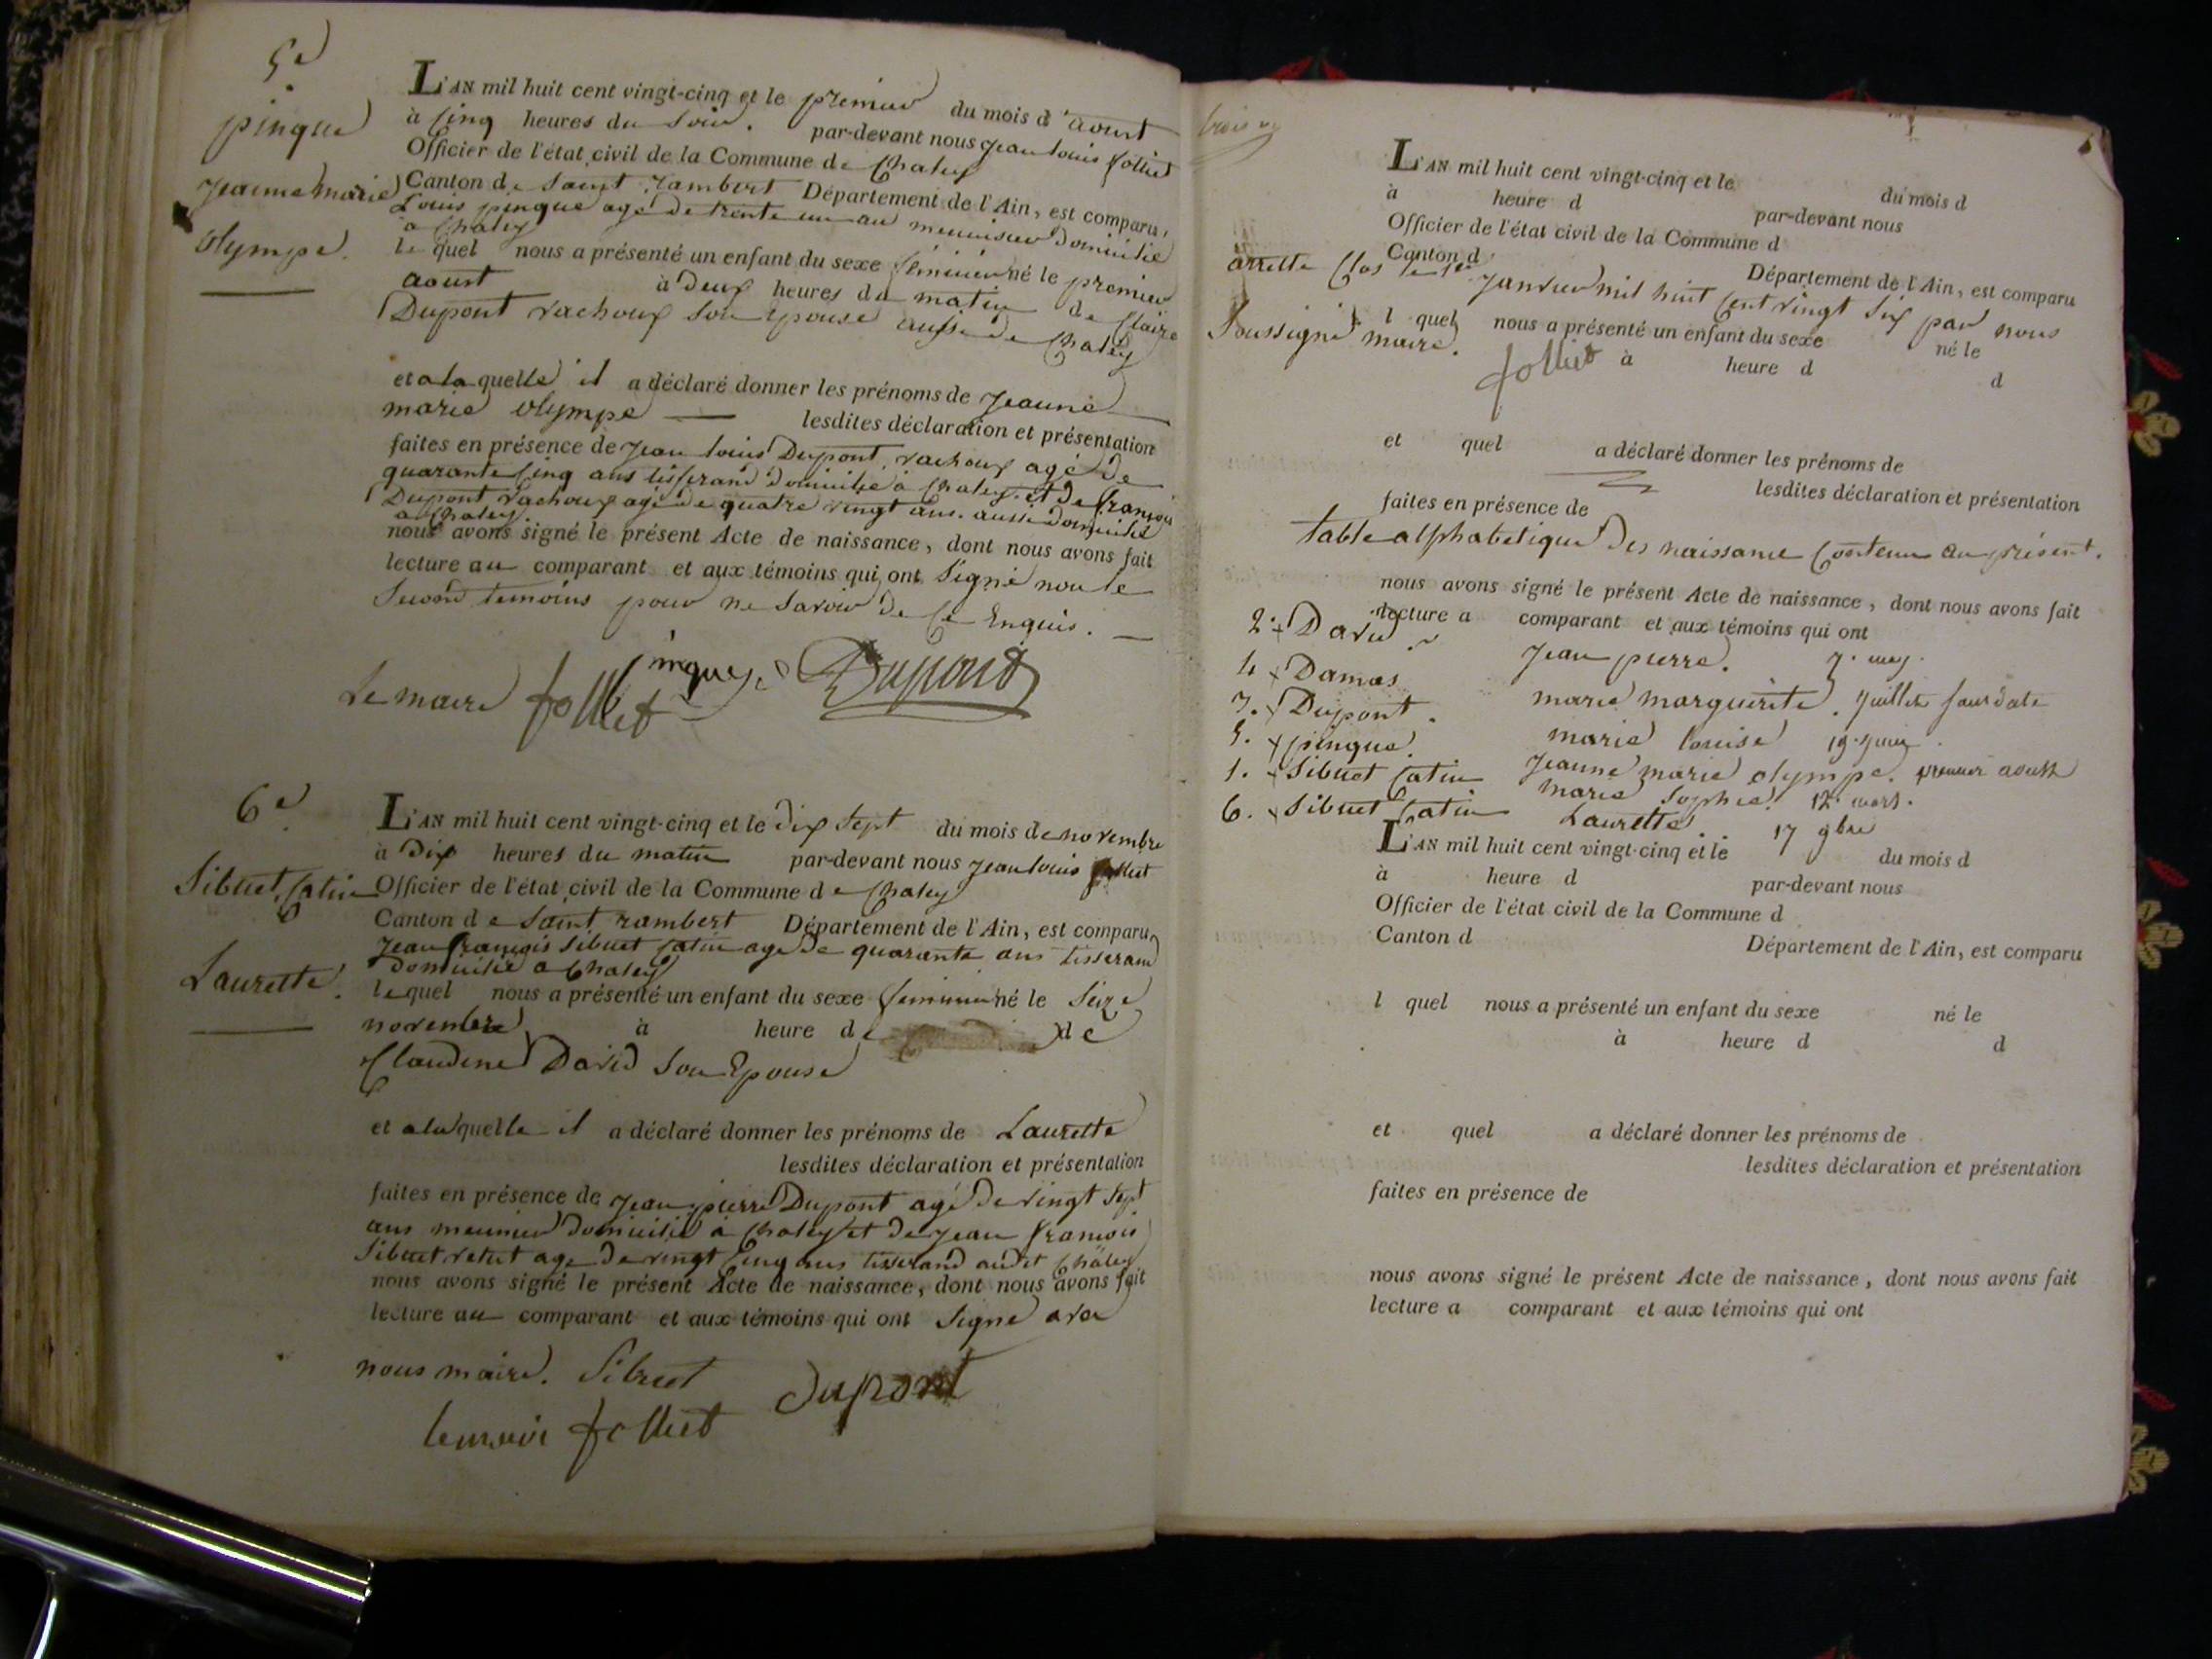 5e
pinque
Jeanne marie
olympe.
L'AN mil huit cent vingt-cinq et le premier du mois d'aoust
à cinq heures du soir. par-devant nous Jean louis folliet
Officier de l'état civil de la Commune de Chaley
Canton de saint rambert Département de l'Ain, est comparu,
Louis pinque agé de trente un an menuisier domicilié
a Chaley
lequel nous a présenté un enfant du sexe feminin né le premier
aoust à deux heures du matin de Claire
Dupont vachoux son epouse aussi de Chaley
et a laquelle il a déclaré donner les prénoms de Jeanne
marie olympe lesdites déclaration et présentation
faites en présence de Jean louis Dupont vachoux agé de
quarante cinq ans tisserand domicilié à Chaley. et de francois
Dupont vachoux agé de quatre vingt ans. aussi domicilié
a Chaley
nous avons signé le présent Acte de naissance, dont nous avons fait
lecture au comparant et aux témoins qui ont signé non le
second temoins pour ne savoir de ce Enquis.
pinque Dupont
Le maire folliet
6e
Sibuet Catin
Laurette.
L'AN mil huit cent vingt-cinq et le dix sept du mois de novembre
à dix heures du matin par-devant nous Jean louis folliet
Officier de l'état civil de la Commune de Chaley
Canton de saint rambert Département de l'Ain, est comparu
Jean francois sibuet catin agé de quarante ans tisserand
domicilié a Chaley
lequel nous a présenté un enfant du sexe feminin né le seize
novembre à heure de de
Claudine David son Epouse
et a laquelle il a déclaré donner les prénoms de Laurette
lesdites déclaration et présentation
faites en présence de Jean pierre Dupont agé de vingt sept
ans meunier domicilié à Chaley et de Jean francois
Sibuet retut agé de vingt cinq ans tisserand audit Chaley
nous avons signé le présent Acte de naissance, dont nous avons fait
lecture au comparant et aux témoins qui ont signé avec
nous maire. Sibuet Dupont
le maire folliet
L'AN mil huit cent vingt-cinq et le du mois d
à heure d par-devant nous
Officier de l'état civil de la Commune d
Canton d Département de l'Ain, est comparu
arretté Clos le 1er Janvier mil huit cent vingt six par nous
Soussigné maire.
l quel nous a présenté un enfant du sexe né le
folliet à heure d d
et quel a déclaré donner les prénoms de
lesdites déclaration et présentation
faites en présence de
table alphabetique des naissance Contenu au présent.
nous avons signé le présent Acte de naissance, dont nous avons fait
lecture a comparant et aux témoins qui ont
2. Jean pierre.
4 Damas marie marguerite. Juillet
3. Dupont. marie louise
5. pinque. Jeanne marie olympe. premier aoust
1. Sibuet Catin marie sophie. 12. mars.
6. Sibuet Catin Laurette 17 9bre
L'AN mil huit cent vingt-cinq et le du mois d
à heure d par-devant nous
Officier de l'état civil de la Commune d
Canton d Département de l'Ain, est comparu
l quel nous a présenté un enfant du sexe né le
à heure d d
et quel a déclaré donner les prénoms de
lesdites déclaration et présentation
faites en présence de
nous avons signé le présent Acte de naissance, dont nous avons fait
lecture a comparant et aux témoins qui ont